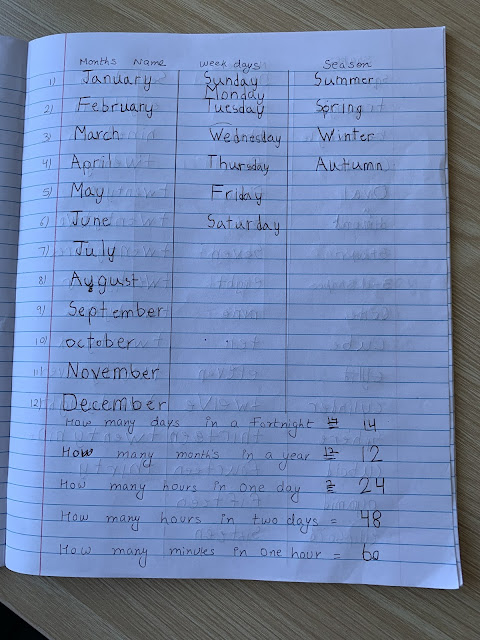 Months Name Week days Season
1) January Sunday Summer
Monday
2) February Tuesday Spring
3) March Wednesday Winter
4) April Thursday Autumn
5) May Friday
6) June Saturday
7) July
8) August
9) September
10) october
11) November
12) December
How many days in a Fortnight = 14
How many months in a year = 12
How many hours in one day = 24
How many hours in two days = 48
How many minutes in one hour = 60